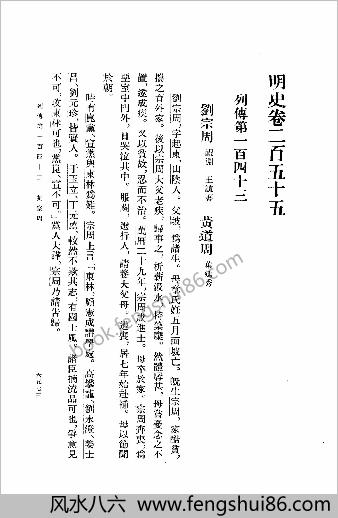 明史卷二百五十五
列傳第一百四十三
劉宗周 祝淵 王毓蓍 黃道周 葉廷秀
劉宗周，字起東，山陰人。父坡，為諸生。母章氏妊五月而坡亡。既生宗周，家酷貧，
攜之育外家。後以宗周大父老疾，歸事之，析薪汲水，持藥糜。然體孱甚，母嘗憂念之不
置，遂成疾。又以貧故，忍而不治。萬曆二十九年，宗周成進士，母卒於家。宗周奔喪，為
堊室中門外，日哭泣其中。服闋，選行人，請養大父母。遭喪，居七年始赴補。母以節聞
於朝。
時有崑黨、宣黨與東林為難。宗周上言：「東林，顧憲成講學處。高攀龍、劉永澄、姜士
昌、劉元珍，皆賢人。于玉立、丁元薦，較然不欺其志，有國士風。諸臣摘流品可也，爭意見
不可；攻東林可也，黨崑、宣不可。」黨人大譁，宗周乃請告歸。
列傳第一百四十三 劉宗周
book.fengshui86.com
风水八六 www.fengshui86.com